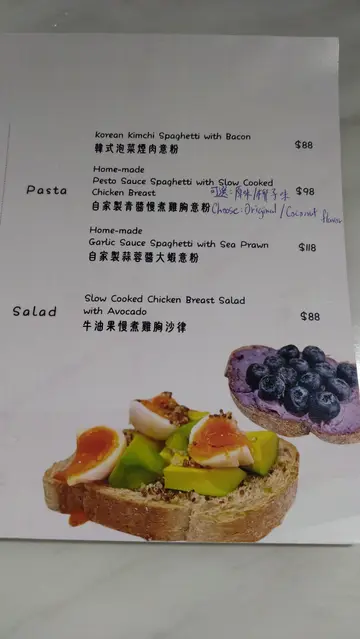 Korean Kimchi Spaghetti with Bacon
韓式泡菜煙肉意粉
$88
Home-made
Pesto Sauce Spaghetti with Slow Cooked
Chicken Breast
可選:原味/椰子味
$98
Pasta
自家製青醬慢煮雞胸意粉
Choose: Original/Coconut flavor
Home-made
Garlic Sauce Spaghetti with Sea Prawn
$118
自家製蒜蓉醬大蝦意粉
Slow Cooked Chicken Breast Salad
Salad
with Avocado
$88
牛油果慢煮雞胸沙律